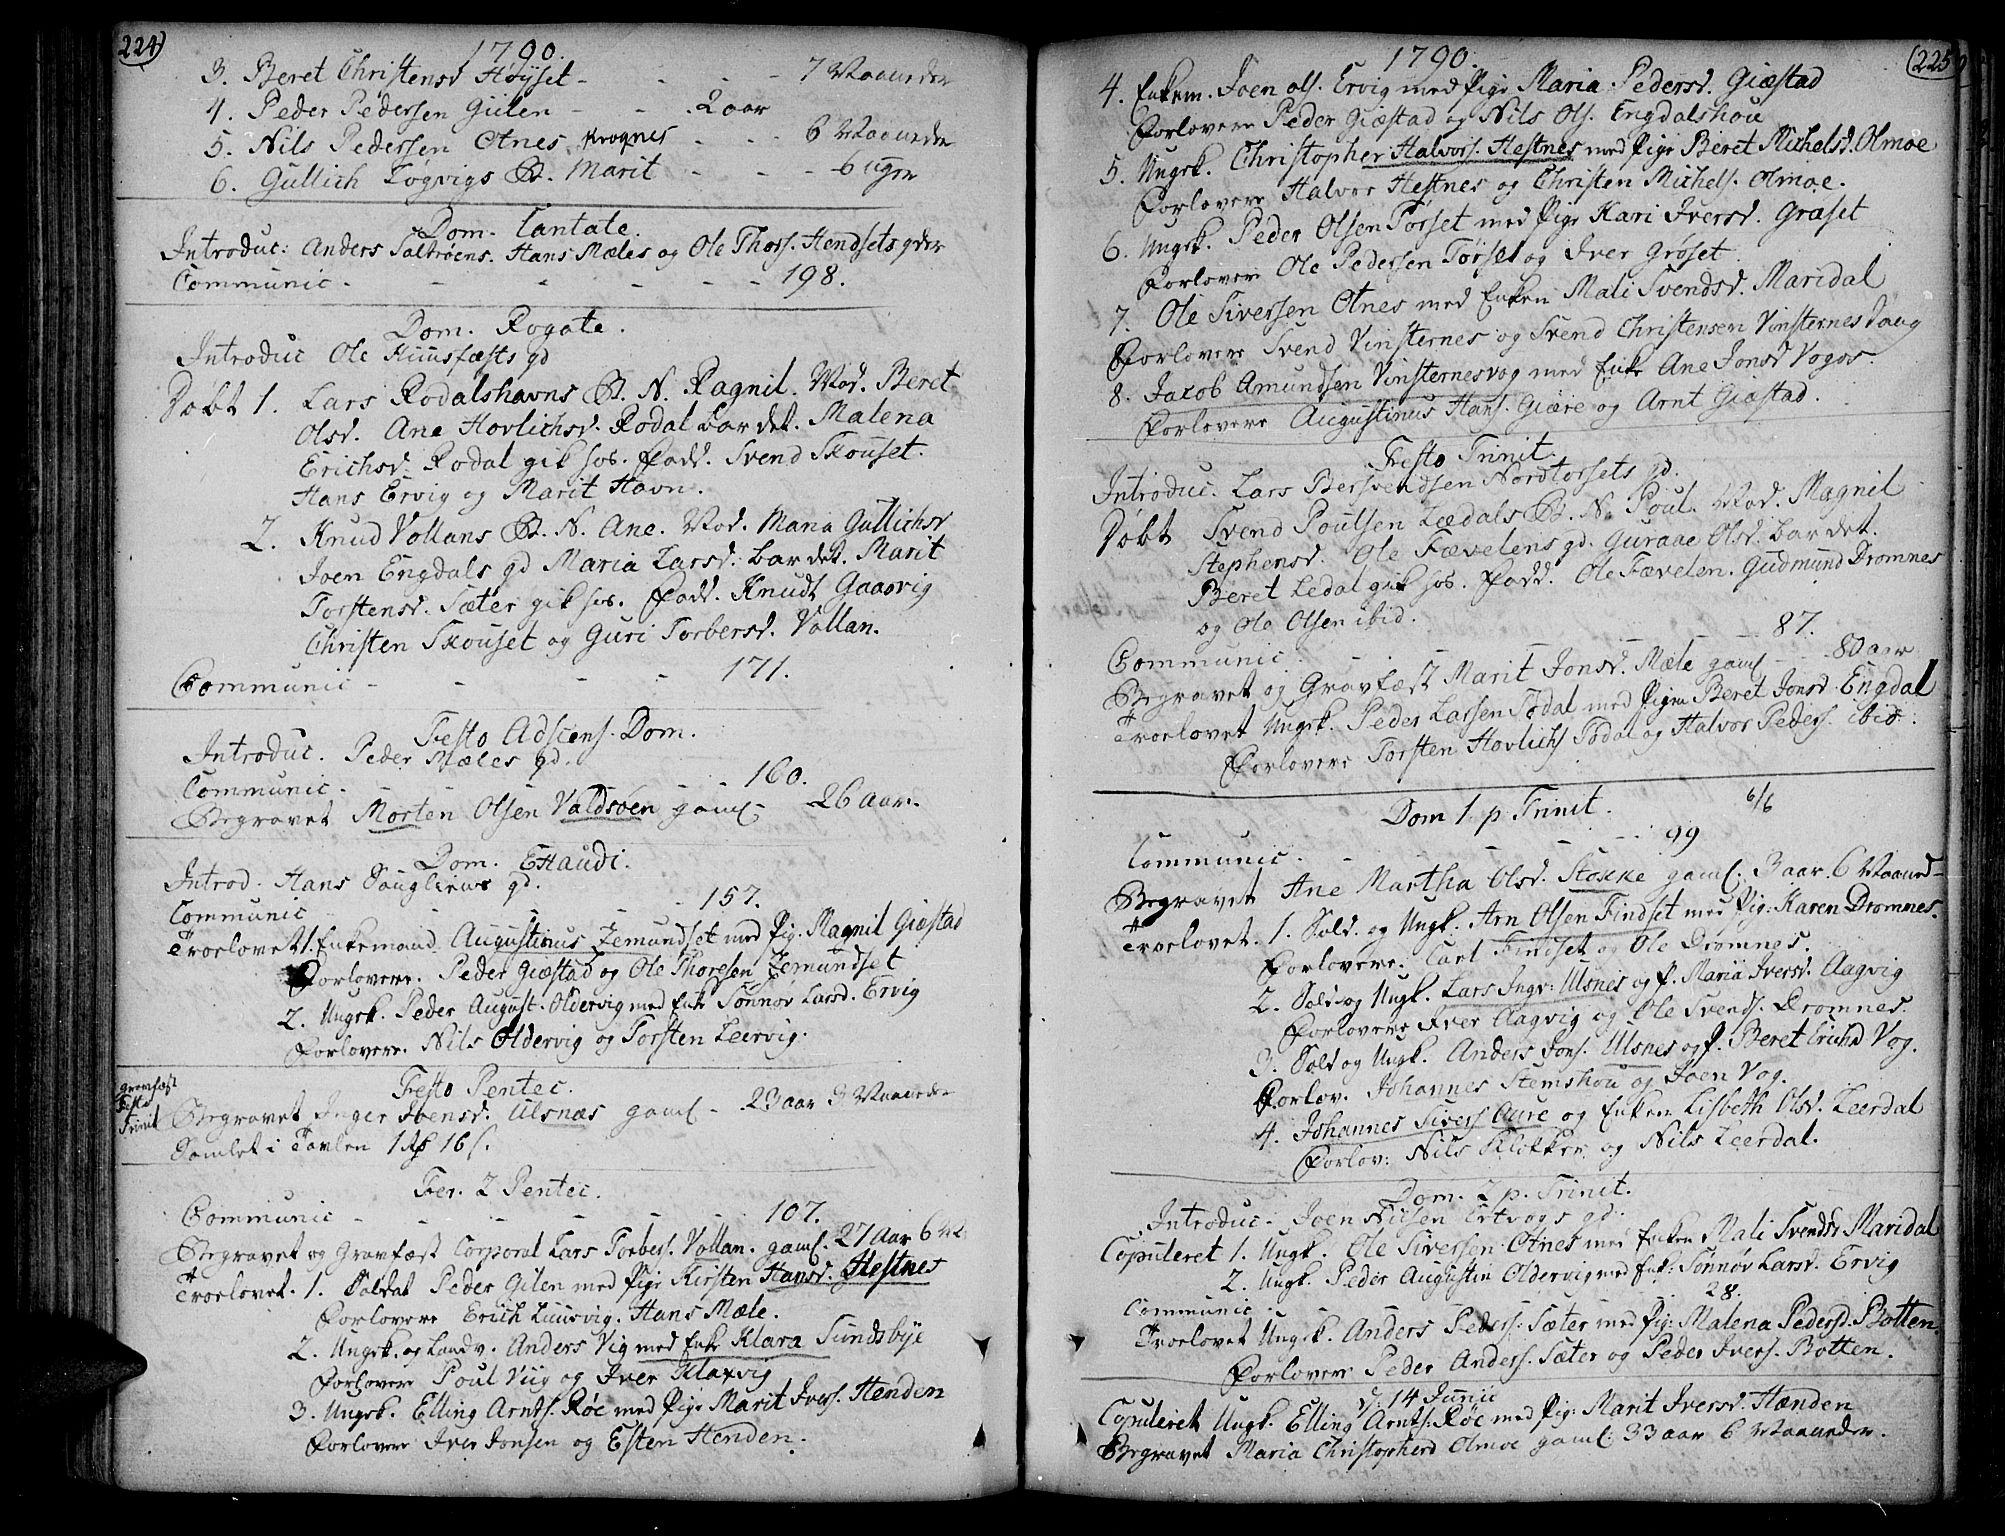 224)
1790.
3. Beret Christensd Høyset - - - - 7 Maaneder
4. Peder Pedersen Gülen - - 2 aar
5. Nils Pedersen Otnes Krognes - - 6 Maaneder
6. Gullich Løgvigs B. Marit - - - 6 uger
Dom. Cantate.
Introduc: Anders Saltrøens. Hans Mæles og Ole Thors. Hendsets qder
Communic - - - - - 198.
Dom. Rogate.
Introduc Ole Huusfæsts qd
Døbt 1. Lars Rodalshavns B. N. Ragnil. Mod. Beret
Olsd. Ane Hovlichsd. Rodal bar det. Malena
Erichsd. Rodal gik hos. Fadd. Svend Skouset.
Hans Ervig og Marit Havn.
2. Knud Vollans B. N. Ane. Mod. Maria Gullichsd
Joen Engdals qd Maria Larsd. bar det. Marit
Torstensd. Sæter gik hos. Fadd. Knudt Gaasvig
Christen Skouset og Guri Torbersd. Vollan.
Communic - - - - 171.
Festo Adscens. Dom.
Introduc. Peder Mæles qd.
Communic. - - - - 160.
Begravet Morten Olsen Valdsøen gaml - 26 aar.
Dom. Exaudi.
Introd. Hans qd.
Communic - - - - 157.
Troelovet 1. Enkemand Augustinus Zemundset med Pig. Magnil Giæstad
Forlovere. Peder Giæstad og Ole Thoresen Zemundset
2. Ungk. Peder August. Oldervig med Enke Sønnøv Larsd. Ervig
Forlovere. Nils Oldervig og Torsten Leervig.
Festo Pentec.
gravfæst
Festo
Trinit
Begravet Inger Ibensd. Ulsnæs gaml - 23 aar 3 Maaneder
Samlet i Tavlen 1 Rd 16 s.
Fer. 2 Pentec.
Communic - - - - - 107.
Begravet og Gravfæst Corporal Lars Torbers. Vollan. gaml. 27 aar 6
Troelovet. 1. Soldat Peder Gilen med Pige Kirsten Hansd. Hestnes
Forlovere Erich Luusvig. Hans Mæle.
2. Ungk. og Landv. Anders Vig med Enke Klara Sundsbye
Forlovere Poul Viig og Iver Klaxvig
3. Ungk. Elling Arnts. Røe med Pige Marit Ivers. Henden
Forlovere Iver Jonsen og Esten Henden.
225)
1790.
4. Enkem. Joen Ols. Ervig med Pige Maria Pedersd. Giæstad
Forlovere Peder Giæstad og Nils Ols. Engdalshou
5. Ungk. Christopher Halvors. Hestnes med Pige Beret Michelsd. Olmoe
Forlovere Halvor Hestnes og Christen Michels. Olmoe.
6. Ungk. Peder Olsen Torset med Pige Kari Iversd. Grøset
Forlovere Ole Pedersen Tørset og Iver Grøset
7. Ole Siversen Otnes med Enken Mali Svendsd. Maridal
Forlovere Svend Vinsternes og Svend Christensen Vinsternes
8. Jacob Amundsen Vinsternesvog med Enke Ane Jonsd Vogos
Forlovere Augustinus Hans. Giære og Arnt Giæstad.
Festo Trinit.
Introduc. Lars Bersvendsen Nordtorsets qd.
Døbt Svend Poulsen Lædals B. N. Poul. Mod. Magnil
Stephensd. Ole Fævelens qd. Guraae Olsd. bar det.
Beret Ledal gik hos. Fadd. Ole Fævelen. Gudmund Dromnes
og Ole Olsen ibid.
Communic - - - - 87.
Begravet og Gravfæst Marit Jonsd. Mæle gaml - 80 aar
Troelovet Ungk. Peder Larsen Todal med Pigen Beret Jonsd. Engdal
Forlovere Torsten Hovlichs Todal og Halvor Peders. ibid.
Dom 1. p. Trinit. 6/6
Communic. - - - - 99
Begravet Ane Martha Olsd. Stokke gaml. 3 aar. 6 Maaned-
Troelovet. 1. Sold. og Ungk. Arn Olsen Findset med Pig: Karen Dromnes.
Forlovere. Carl Findset og Ole Dromnes.
2. Sold og Ungk. Lars Ingv: Ulsnes og P. Maria Iversd. Aagvig
Forlovere Iver Aagvig og Ole Svends. Dromnes.
3. Sold og Ungk. Anders Jons. Ulsnes og P. Beret Erichd Vog.
Forlov. Johannes Stemshou og Joen Vog.
4. Johannes Sivers Aure og Enken Lisbeth Olsd. Leerdal
Forlov: Nils Klokker og Nils Leerdal.
Dom. 2 p. Trinit.
Introduc. Joen Nilsen Ertvogs qd.
Copuleret 1. Ungk. Ole Siversen Otnes med Enken Mali Svendsd Maridal
2. Ungk. Peder Augustin Oldervig med Enk: Sønnøv Larsd. Ervig
Communic - - - - 28.
Troelovet Ungk. Anders Peders: Sæter med Pig: Malena Pedersd. Botten.
Forlovere Peder Anders. Sæter og Peder Ivers. Botten.
d: 14 Junii
Copuleret Ungk. Elling Arnts: Røe med Pig: Marit Iversd. Hænden
Begravet Maria Christopherd Olmoe gaml. 33 aar 6 Maaneder.